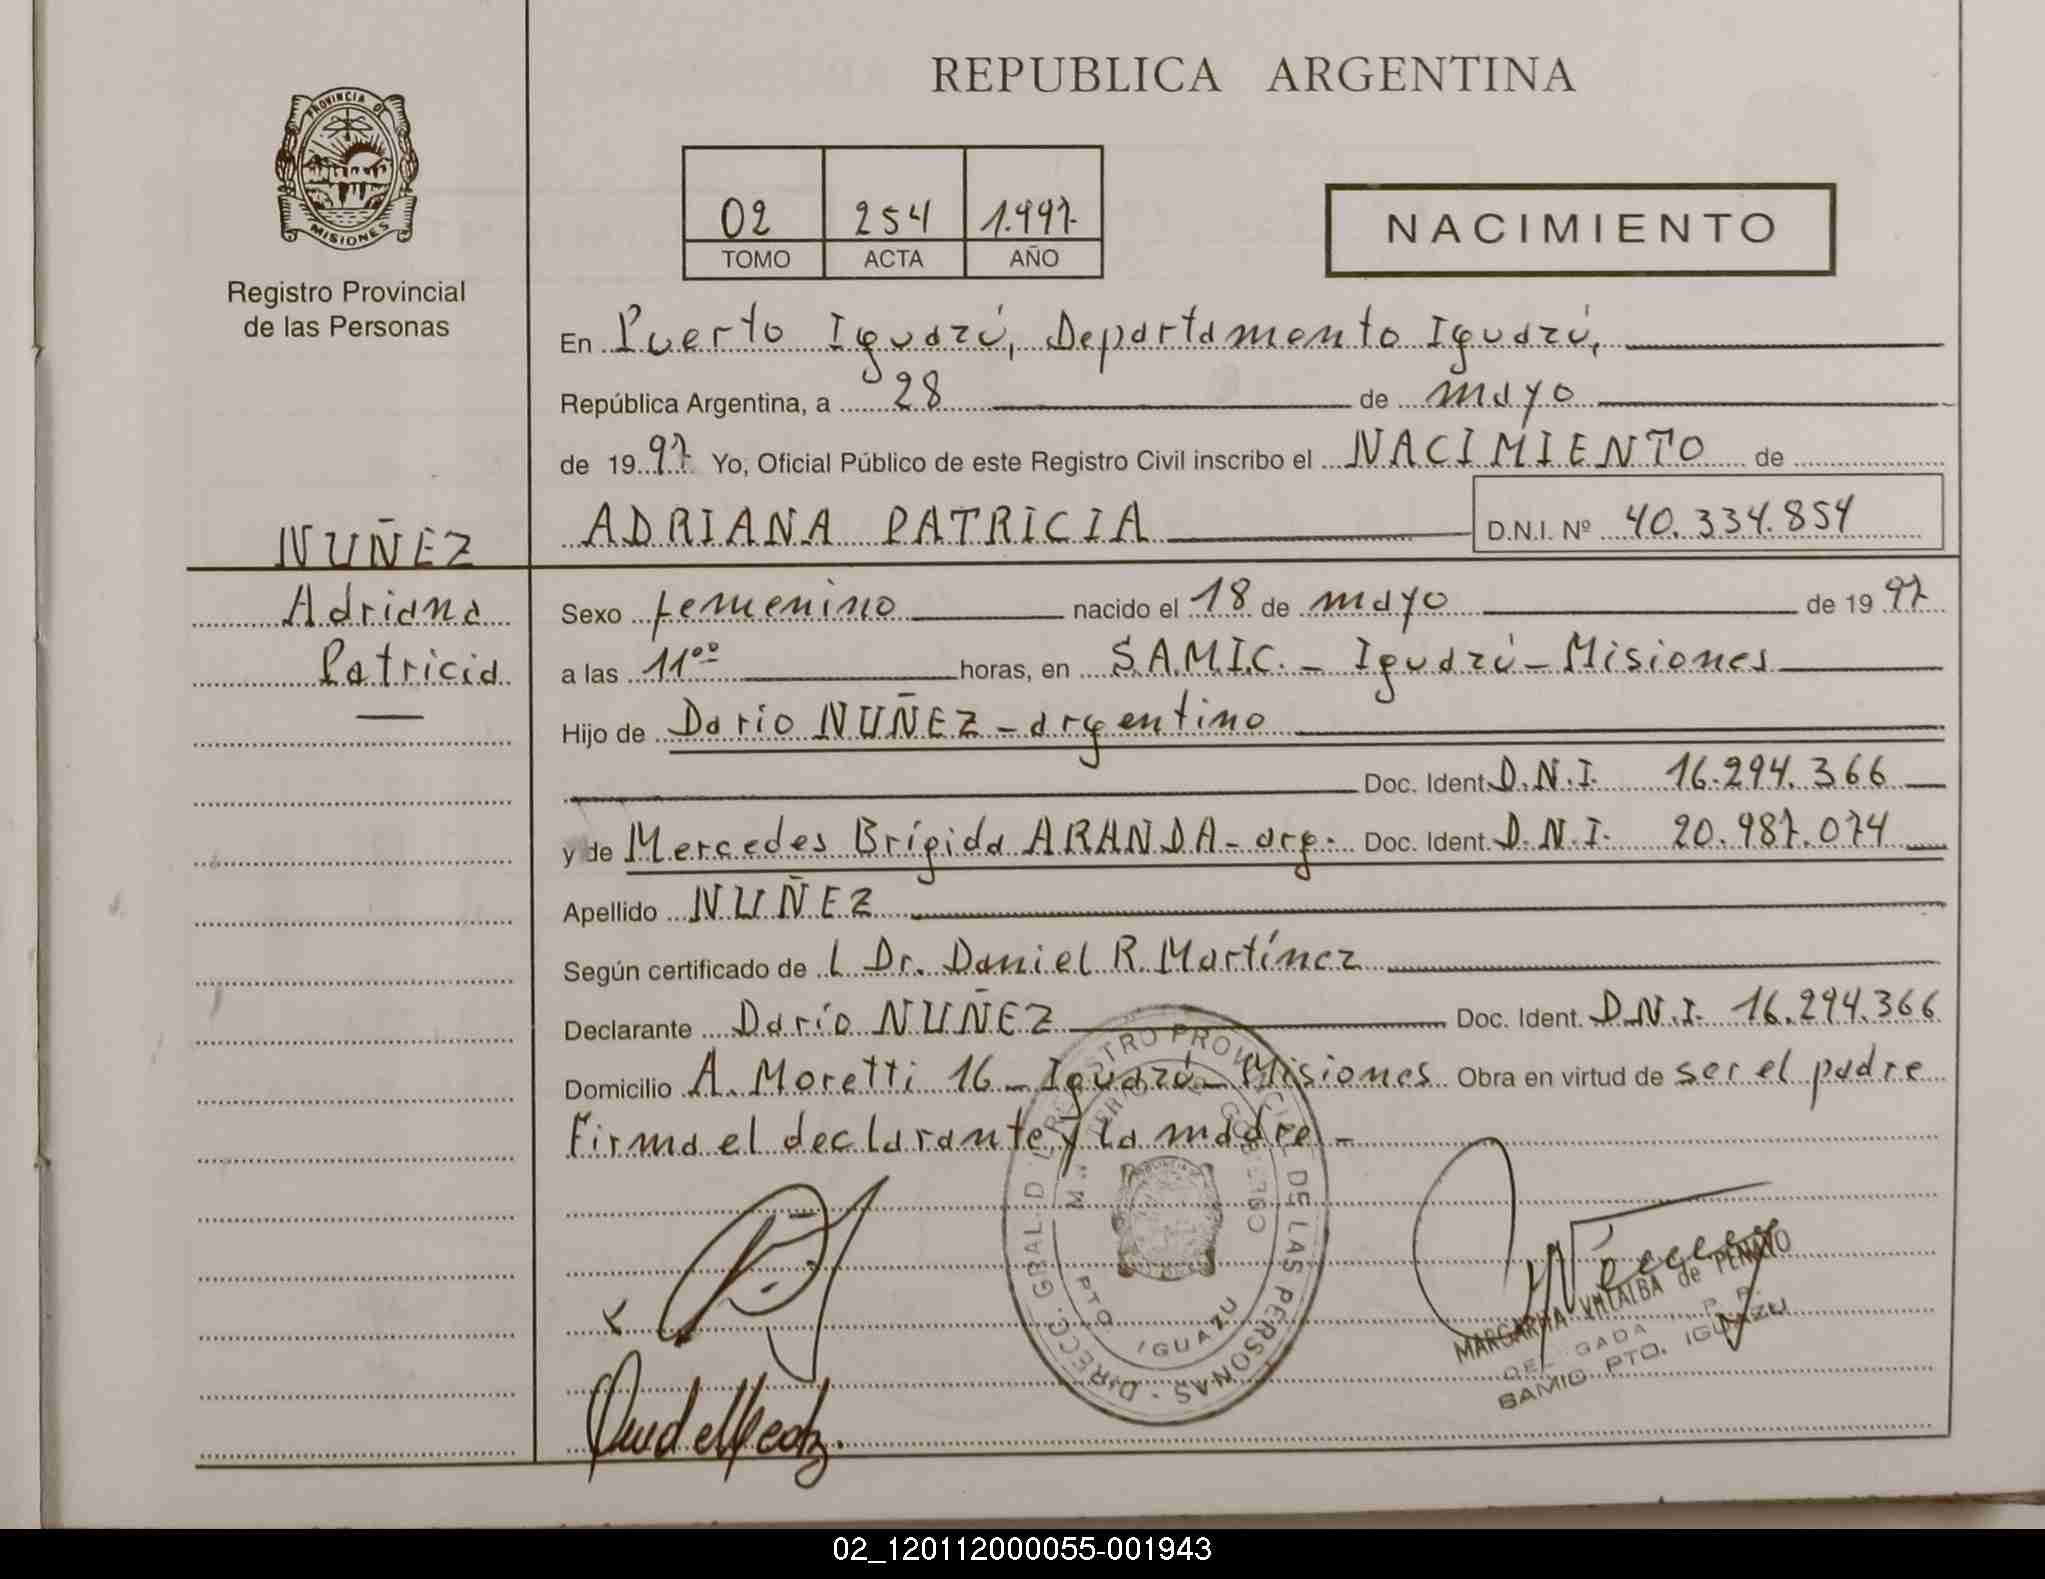 REPUBLICA ARGENTINA
PROVINCIA DE
MISIONES
Registro Provincial
de las Personas
02 254 1.997
TOMO ACTA AÑO
NACIMIENTO
En Puerto Iguazú, Departamento Iguazú,
República Argentina, a 28 de mayo
de 1997 Yo, Oficial Público de este Registro Civil inscribo el NACIMIENTO de
ADRIANA PATRICIA D.N.I. Nº 40.334.854
NUÑEZ
Adriana
Patricia
Sexo femenino nacido el 18 de mayo de 1997
a las 11ºº horas, en S.A.M.I.C. - Iguazú - Misiones
Hijo de Dario NUÑEZ - argentino
Doc. Ident. D.N.I. 16.294.366
y de Mercedes Brígida ARANDA - arg. Doc. Ident. D.N.I. 20.987.074
Apellido NUÑEZ
Según certificado de l Dr. Daniel R. Martínez
Declarante Darío NUÑEZ Doc. Ident. D.N.I. 16.294.366
Domicilio A. Moretti 16 - Iguazú - Misiones Obra en virtud de ser el padre
Firma el declarante y la madre. -
DIRECC. GRAL. D REGISTRO PROVINCIAL DE LAS PERSONAS
GOBIERNO
PTO. IGUAZU
MARGARITA VILLALBA de PENAYO
SAMIC PTO. IGUAZU
02_120112000055-001943